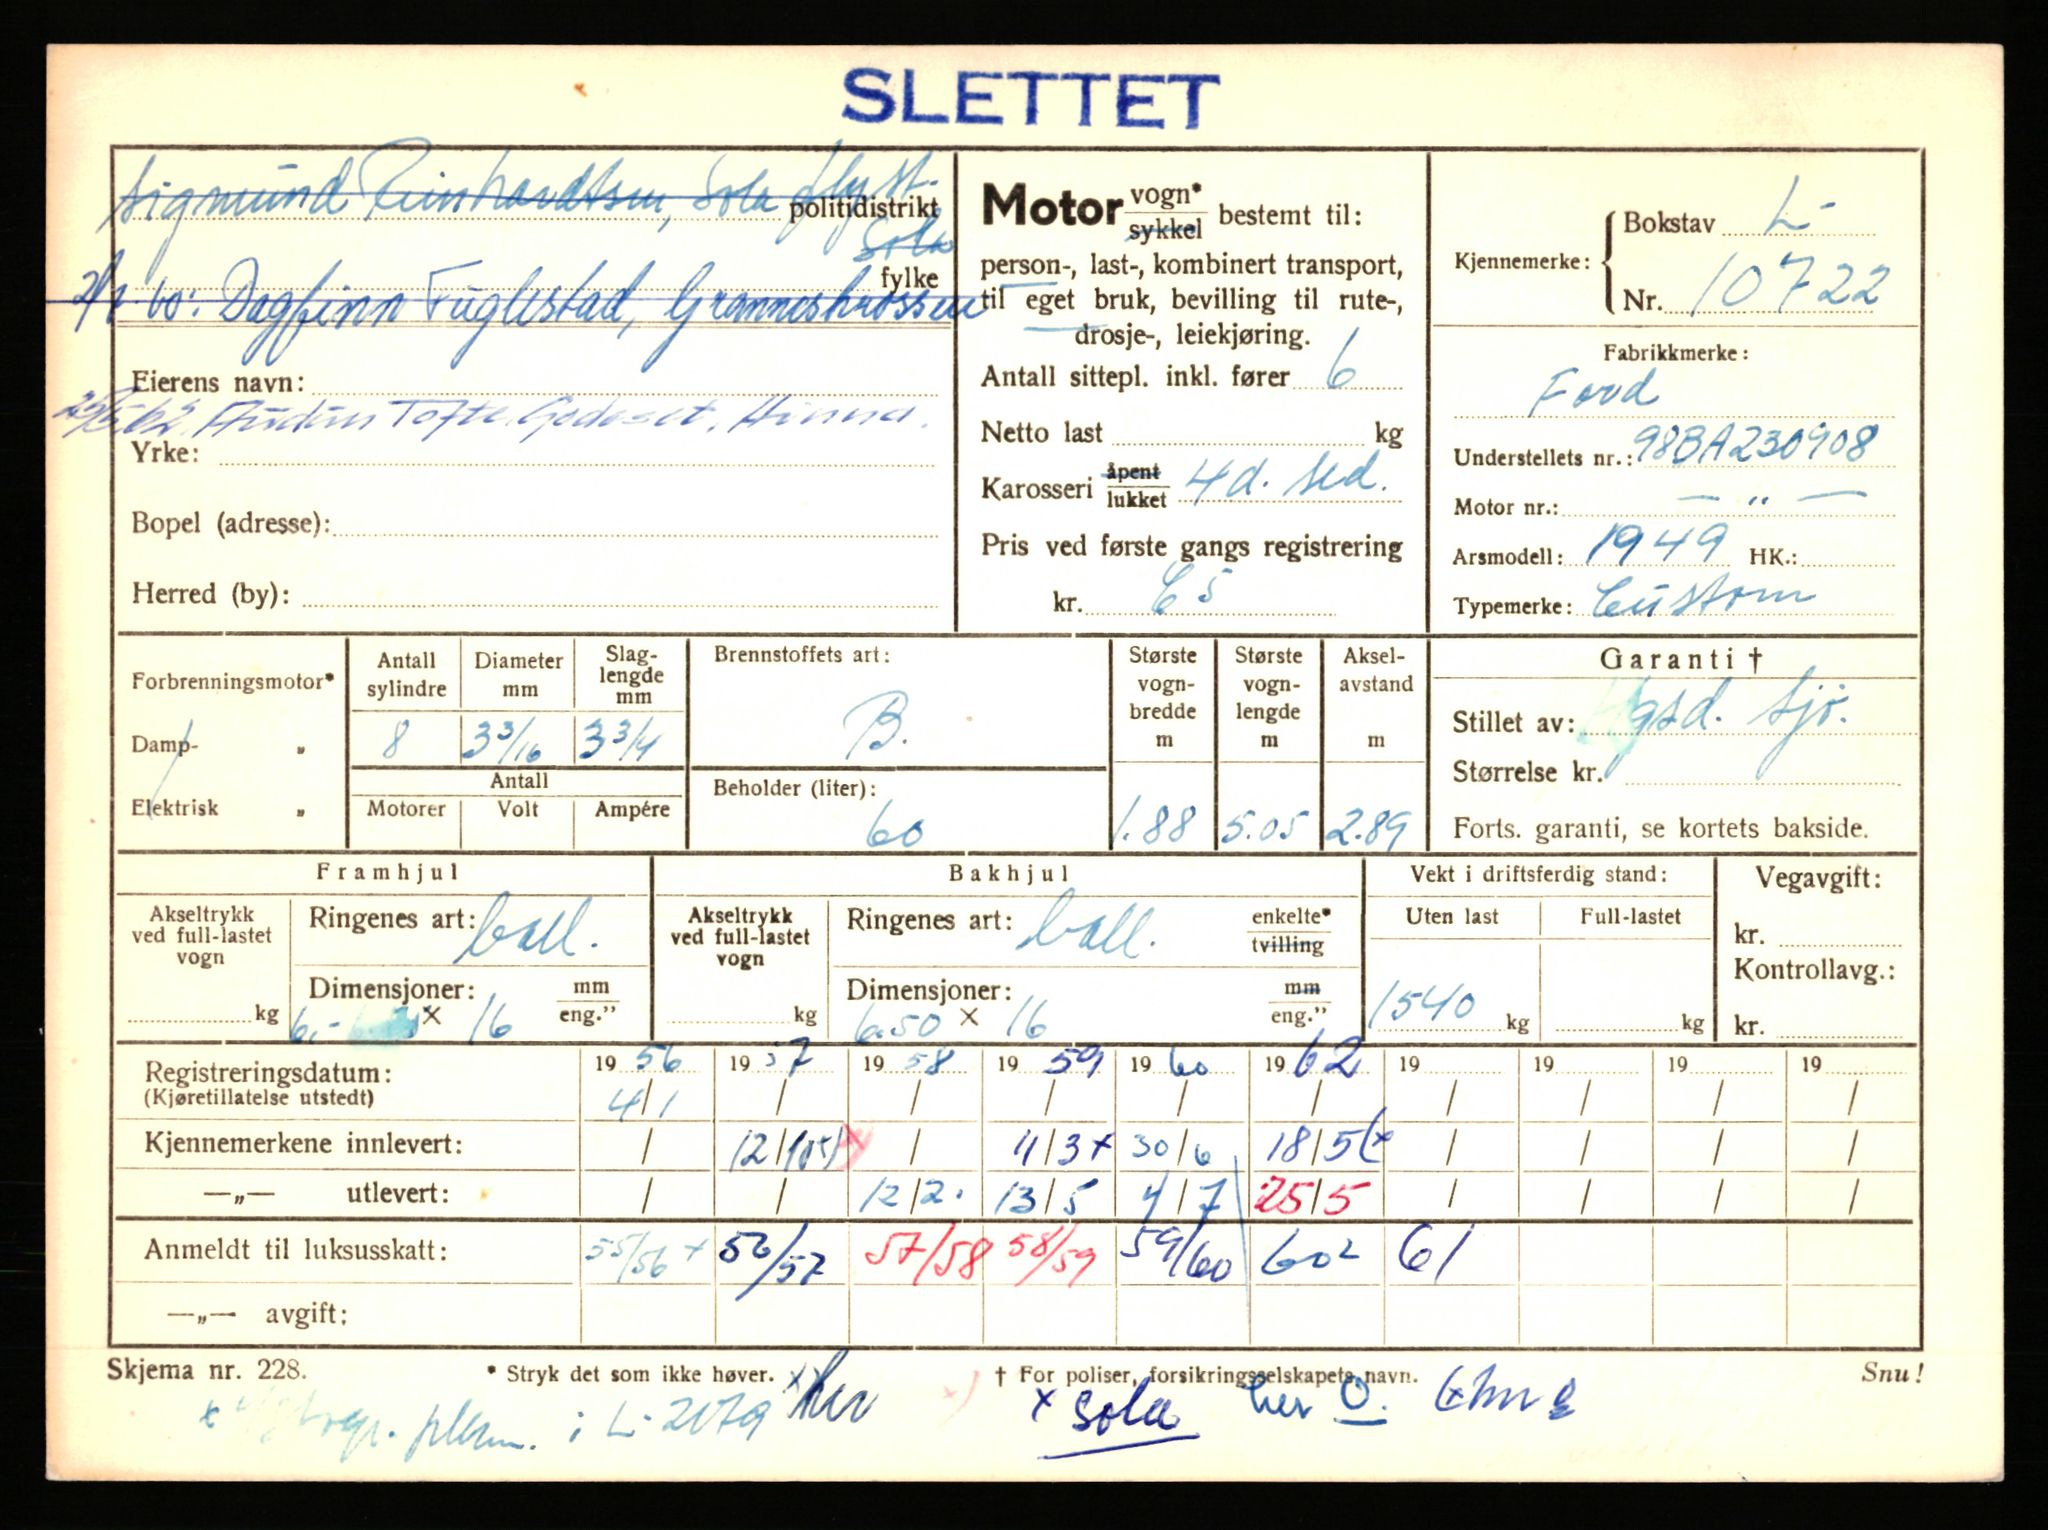 SLETTET
Sigmund Reinhardtsen, Sola flyst.
politidistrikt
Sola
fylke
60: Dagfinn Fuglestad, Grannes
Eierens navn:
25/5.62. Audun Tofte, Godeset, Hinna.
Yrke:
Bopel (adresse):
Herred (by):
Motor vogn*
sykkel bestemt til:
person-, last-, kombinert transport,
til eget bruk, bevilling til rute-,
drosje-, leiekjøring.
Antall sittepl. inkl. fører 6
Netto last kg
Karosseri åpent
lukket 4d. sed.
Pris ved første gangs registrering
kr.
Kjennemerke: Bokstav L-
Nr. 10722
Fabrikkmerke:
Ford
Understellets nr.: 98BA230908
Motor nr.: — „ —
Arsmodell: 1949 HK.:
Typemerke: Custom
Forbrenningsmotor*
Damp- „
Elektrisk „
Antall sylindre 8
Diameter mm 3 3/16
Slag-lengde mm 3 3/4
Antall
Motorer Volt Ampére
Brennstoffets art:
B.
Beholder (liter):
60
Største vogn-bredde m 1.88
Største vogn-lengde m 5.05
Aksel-avstand m 2.89
Garanti †
Stillet av: sjø.
Størrelse kr.
Forts. garanti, se kortets bakside.
Framhjul
Akseltrykk ved full-lastet vogn kg
Ringenes art: ball.
Dimensjoner: mm
6.- × 16 eng."
Bakhjul
Akseltrykk ved full-lastet vogn kg
Ringenes art: ball. enkelte*
tvilling
Dimensjoner: mm
6.50 × 16 eng."
Vekt i driftsferdig stand:
Uten last Full-lastet
1540 kg kg
Vegavgift:
kr.
Kontrollavg.:
kr.
Registreringsdatum: 19 56 19 57 19 58 19 59 19 60 19 62 19 19 19 19
(Kjøretillatelse utstedt) 4/1 / / / / / / / / /
Kjennemerkene innlevert: / 12/ / 11/3 x 30/6 18/5 / / / /
—„— utlevert: / / 12/2. 13/5 4/7 25/5 / / / /
Anmeldt til luksusskatt: 55/56 x 56/57 57/58 58/59 59/60 60² 61
—„— avgift:
Skjema nr. 228. * Stryk det som ikke høver. † For poliser, forsikringsselskapets navn. Snu!
i L-2079 her x Sola her O.